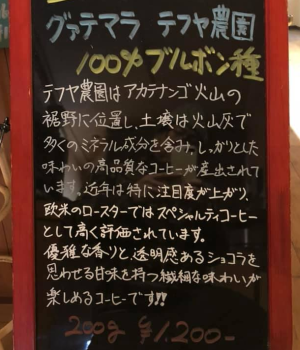 グァテマラ テフヤ農園
100%ブルボン種
テフヤ農園はアカテナンゴ火山の
裾野に位置し、土壌は火山灰で
多くのミネラル成分を含み、しっかりとした
味わいの高品質なコーヒーが産出されて
います。近年は特に注目度が上がり、
欧米のロースターではスペシャルティコーヒー
として高く評価されています。
優雅な香りと、透明感あるショコラを
思わせる甘味を持つ繊細な味わいが
楽しめるコーヒーです!!
200g ¥1,200-